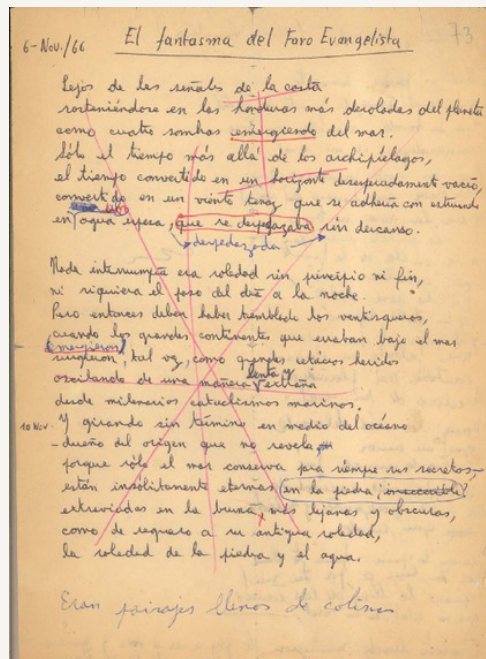 73
6-Nov./66 El fantasma del Faro Evangelista
Lejos de las señales de la costa
sosteniéndose en las honduras más desoladas del planeta
como cuatro sombras emergiendo del mar.
Sólo el tiempo más allá de los archipiélagos,
el tiempo convertido en un horizonte desesperadamente vacío,
convertido en un viento tenaz que se adhería con estruendo
en agua espesa, que se despedazaba sin descanso.
despedazada
Nada interrumpía esa soledad sin principio ni fin,
ni siquiera el paso del día a la noche.
Pero entonces deben haber temblado los ventisqueros,
cuando los grandes continentes que erraban bajo el mar
emergieron
surgieron, tal vez, como grandes cetáceos heridos
lenta y
oscilando de una manera extraña
desde milenarios cataclismos marinos.
10 Nov. Y girando sin término en medio del océano
- dueño del origen que no revela,
porque sólo el mar conserva para siempre sus secretos,-
están insólitamente eternas en la piedra, inaccesible
extraviadas en la bruma, más lejanas y obscuras,
como de regreso a su antigua soledad,
la soledad de la piedra y el agua.
Eran paisajes llenos de colinas